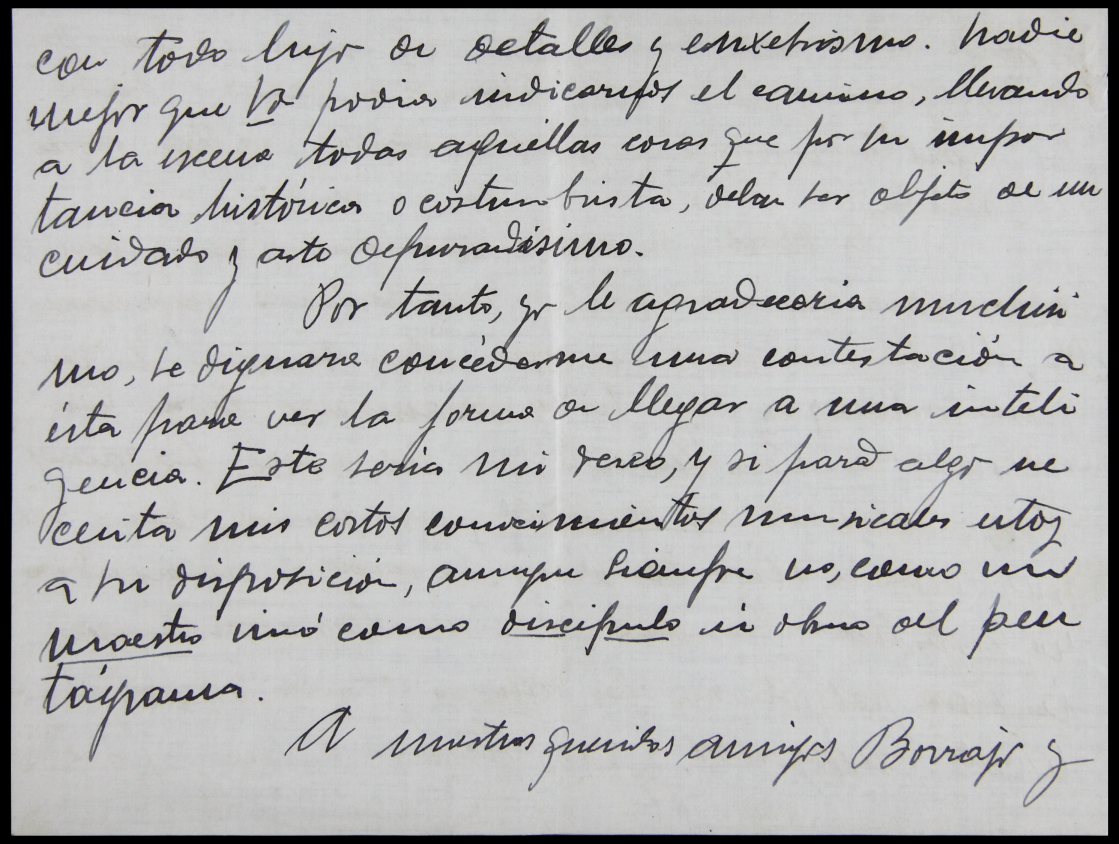 con todo lujo de detalles y enxebrismo. Nadie
mejor que Vd podria indicarnos el camino, llevando
a la escena todas aquellas cosas que por su impor
tancia histórica o costumbrista, deban ser objeto de un
cuidado y arte depuradísimo.
Por tanto, yo le agradeceria muchisi
mo, se dignara concederme una contestación a
ésta para ver la forma de llegar a una inteli
gencia. Este seria mi deseo, y si para algo ne
cesita mis cortos conocimientos musicales estoy
a su disposición, aunque siempre no, como un
maestro sinó como discípulo u obrero del pen
tágrama.
A nuestros queridos amigos Borrajo y